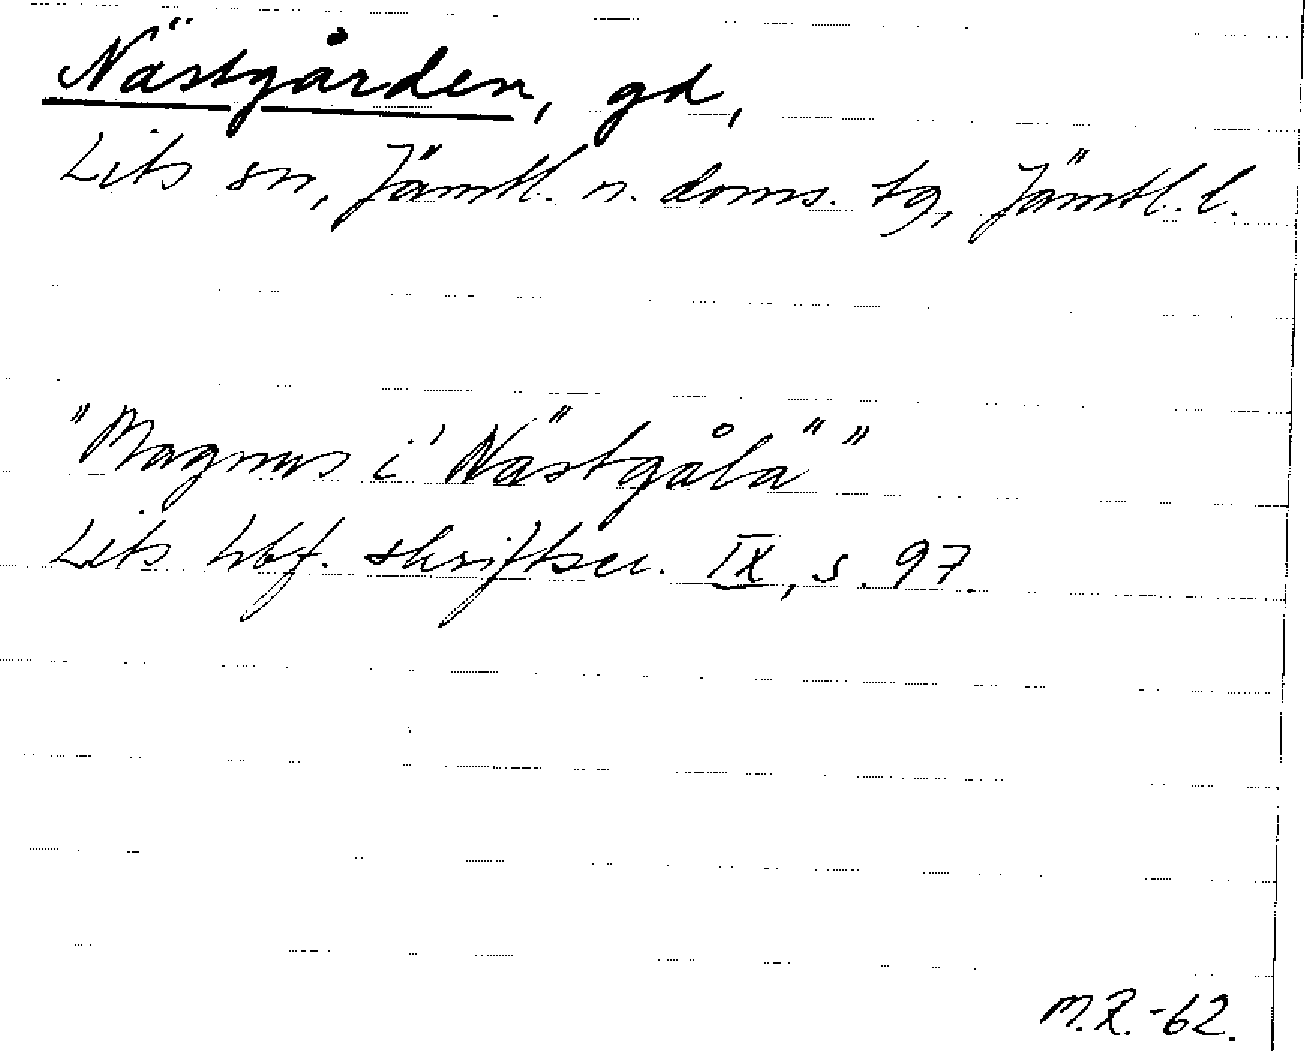 Nästgården, gd,
Lits sn, Jämtl. n. doms. tg, Jämtl. l.
"Magnus i 'Nästgåla" "
Lits hbf. skriftser. IX, s. 97.
M.R. -62.